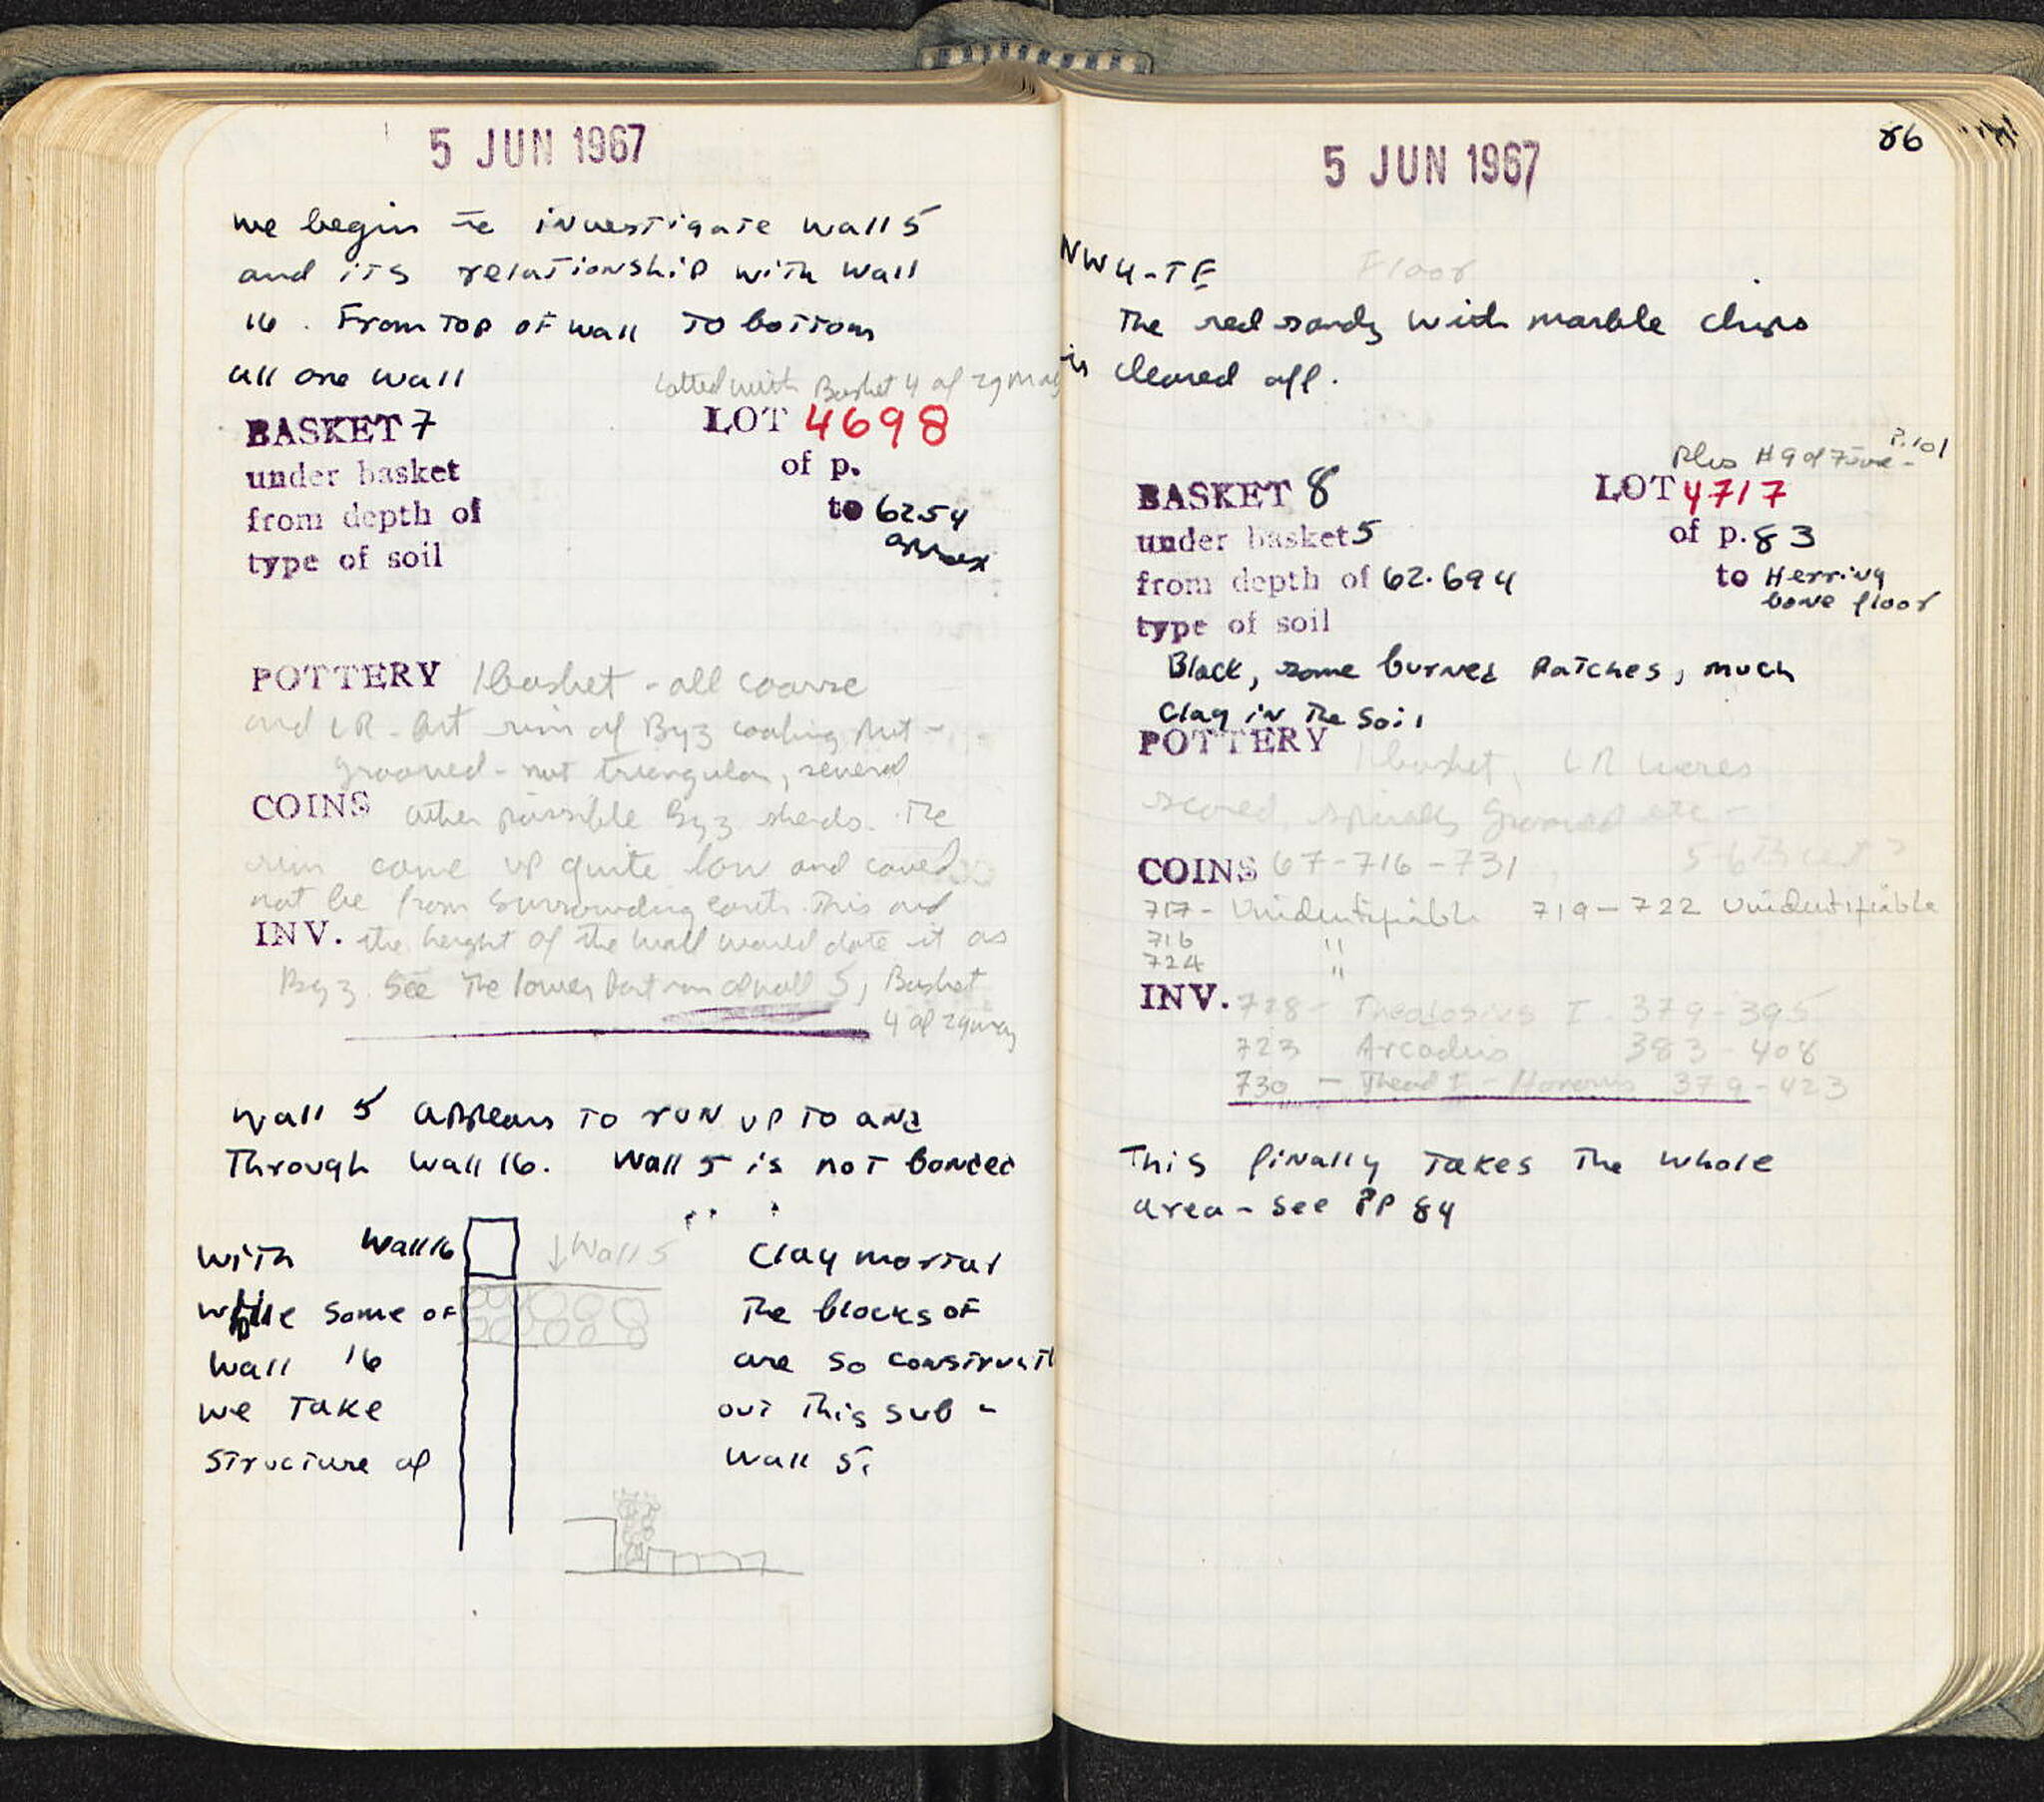 5 JUN 1967
we begin to investigate wall 5
and its relationship with wall
16. From top of wall to bottom
all one wall
Lotted with Basket 4 of 29 May
BASKET 7 LOT 4698
under basket of p.
from depth of to 6254
approx
type of soil
POTTERY 1 basket - all coarse
and LR - but rim of Byz cooking pot -
grooved - not triangular, several
COINS other possible Byz sherds. The
rim came up quite low and could
not be from surrounding earth. This and
INV. the height of the wall would date it as
Byz. See the lower part of wall 5, Basket
4 of 29 may
Wall 5 appears to run up to and
Through wall 16. Wall 5 is not bonded
with Wall 16 ↓Wall 5 clay mortar
while some of the blocks of
wall 16 are so construct
we take out this sub -
structure of wall 5.
86
5 JUN 1967
NW4-TF Floor
The red sandy with marble chips
is cleared off.
Plus #9 of 7 June - P.101
BASKET 8 LOT 4717
under basket 5 of p. 83
from depth of 62.694 to Herring
bone floor
type of soil
Black, some burned patches, much
clay in the soil
POTTERY 1 basket, LR wares
scored, spirally grooved etc -
5-6th cent?
COINS 67-716-731
717 - Unidentifiable 719-722 Unidentifiable
716 "
724 "
INV. 728 - Theodosius I. 379-395
723 Arcadius 383-408
730 - Theod I - Honorius 379-423
This finally takes the whole
area - see PP 84